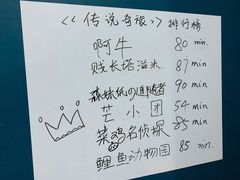 《传说奇旅》排行榜
啊牛 80 min.
贱长塔滋米 87 min
森林球纸の追随者 90 min
芒小团 54 min
菜鸡名侦探 85 min
鲤鱼动物园 85 min.